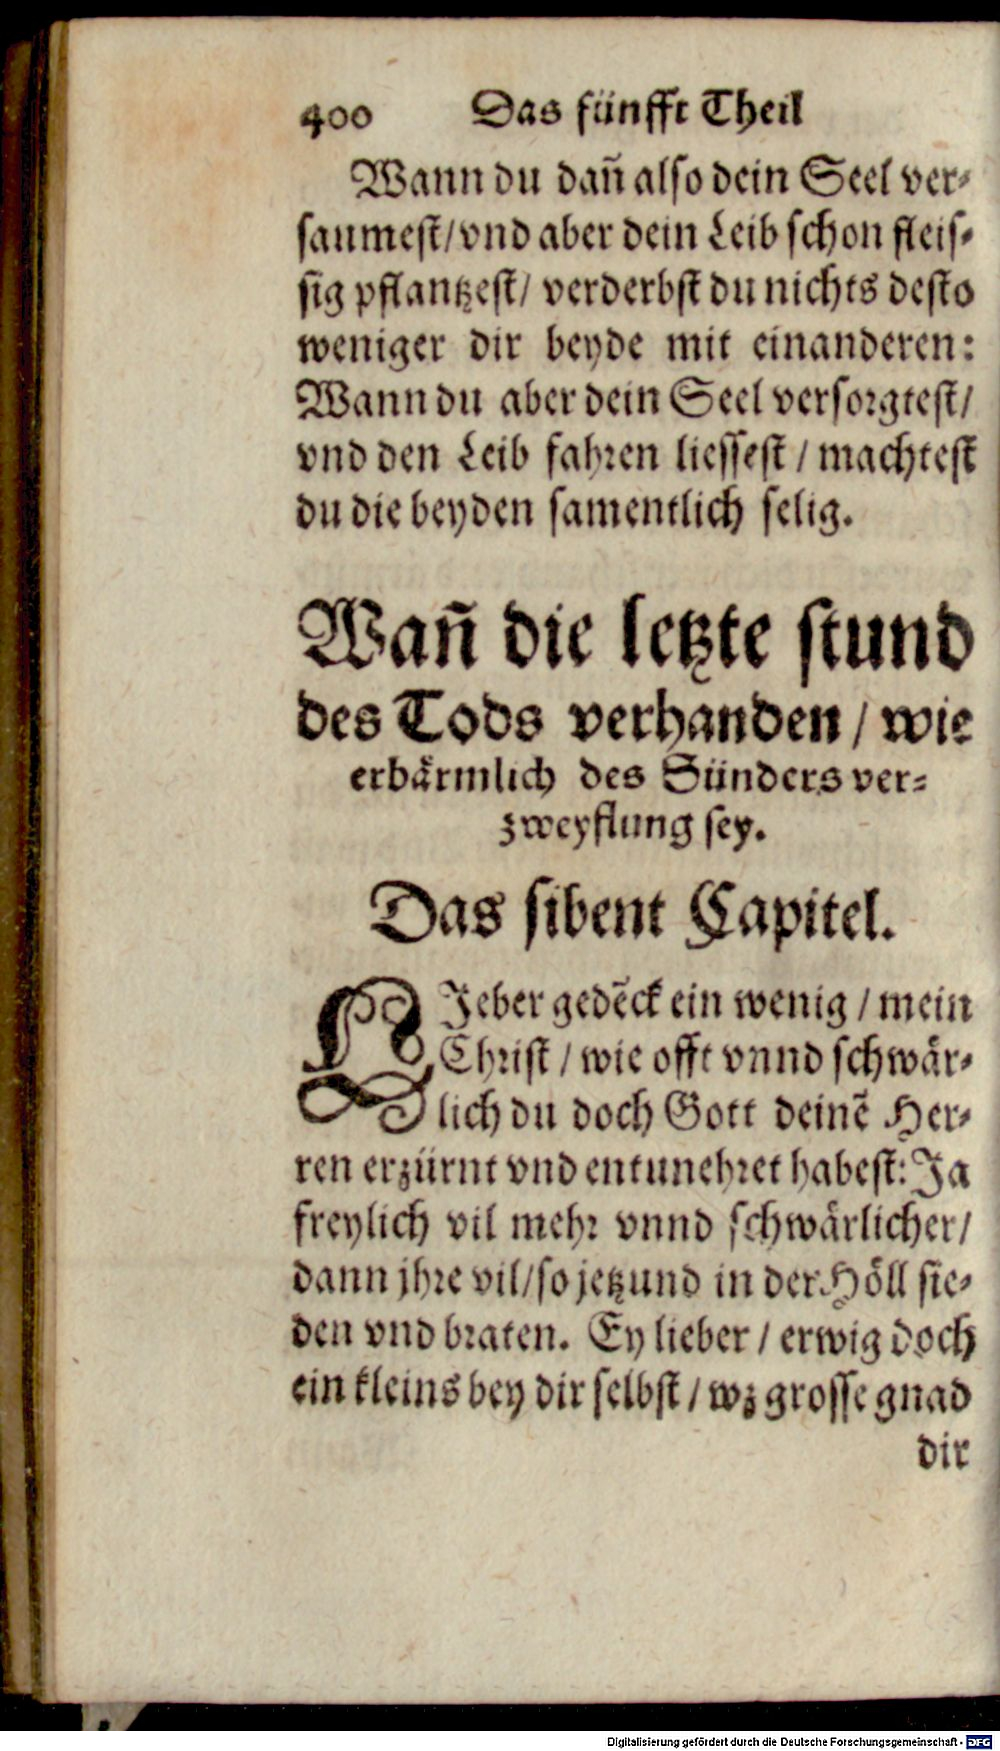 400 Das fünfft Theil
Wann du dañ also dein Seel ver-
saumest/vnd aber dein Leib schon fleis-
sig pflantzest/ verderbst du nichts desto
weniger dir beyde mit einanderen:
Wann du aber dein Seel versorgtest/
vnd den Leib fahren liessest / machtest
du die beyden samentlich selig.
Wañ die letzte stund
des Tods verhanden / wie
erbärmlich des Sünders ver-
zweyflung sey.
Das sibent Capitel.
LIeber gedẽck ein wenig / mein
Christ / wie offt vnnd schwär-
lich du doch Gott deinẽ Her-
ren erzürnt vnd entunehret habest: Ja
freylich vil mehr vnnd schwärlicher/
dann jhre vil/so jetzund in der Höll sie-
den vnd braten. Ey lieber / erwig doch
ein kleins bey dir selbst / wz grosse gnad
dir
Digitalisierung gefördert durch die Deutsche Forschungsgemeinschaft - DFG